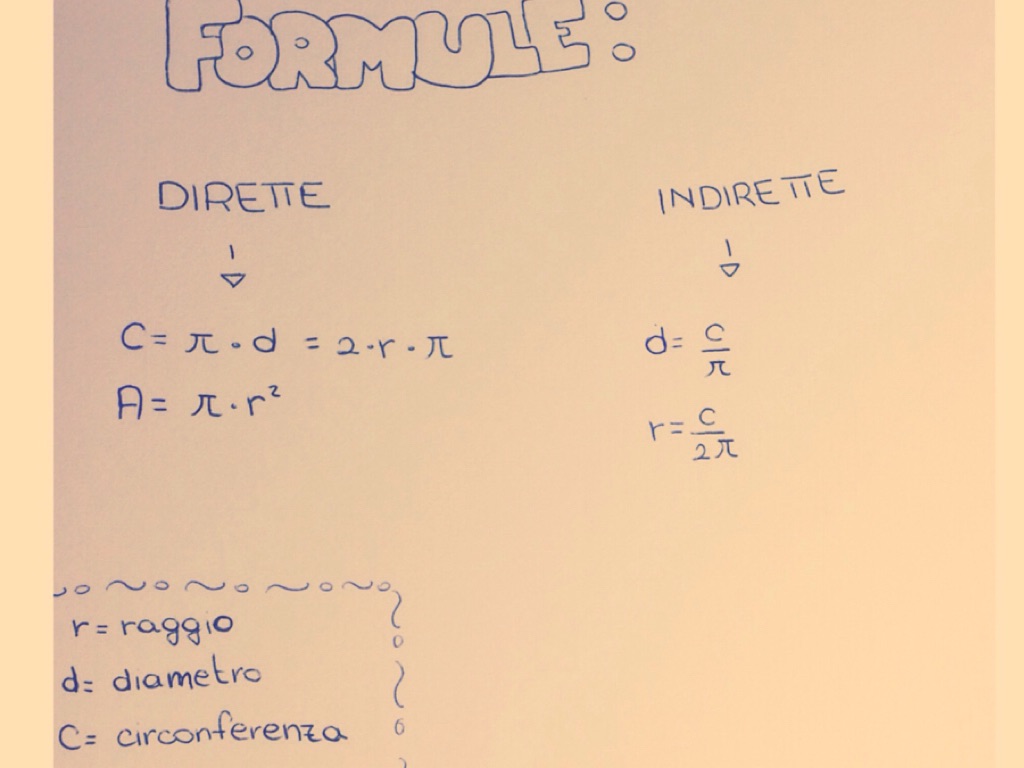 FORMULE:
DIRETTE
C= π·d = 2·r·π
A= π·r²
INDIRETTE
d= C/π
r= C/2π
r= raggio
d= diametro
C= circonferenza